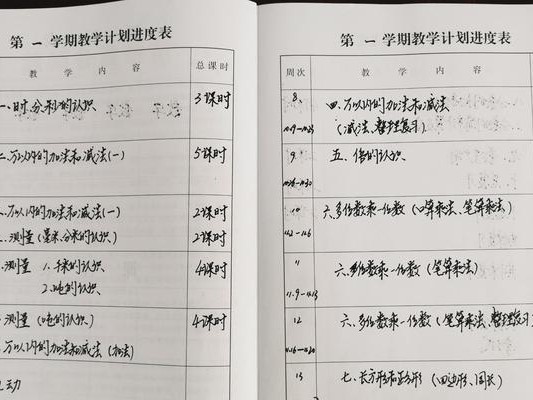 第 一 学期教学计划进度表
教 学 内 容 总课时
一、时、分、秒的认识 3课时
二、万以内的加法和减法(一) 5课时
二、万以内的加法和减法(一) 2课时
三、测量(毫米、分米的认识) 2课时
三、测量 1. 千米的认识 4课时
2. 吨的认识
三、测量(吨的认识) 4课时
四、万以内的加法和减法(加法)
动
第 一 学期教学计划进度表
周次 教 学 内 容
8 四、万以内的加法和减法
10.19-10.23 (减法、整理复习)
9 五、倍的认识
10.26-10.30
10 六、多位数乘一位数(口算乘法、笔算乘法)
11.2-11.6
11 六、多位数乘一位数(笔算乘法)
11.9-11.13
12 六、多位数乘一位数(笔算乘法、整理复习)
11.16-11.20
13 七、长方形和正方形(四边形、周长)